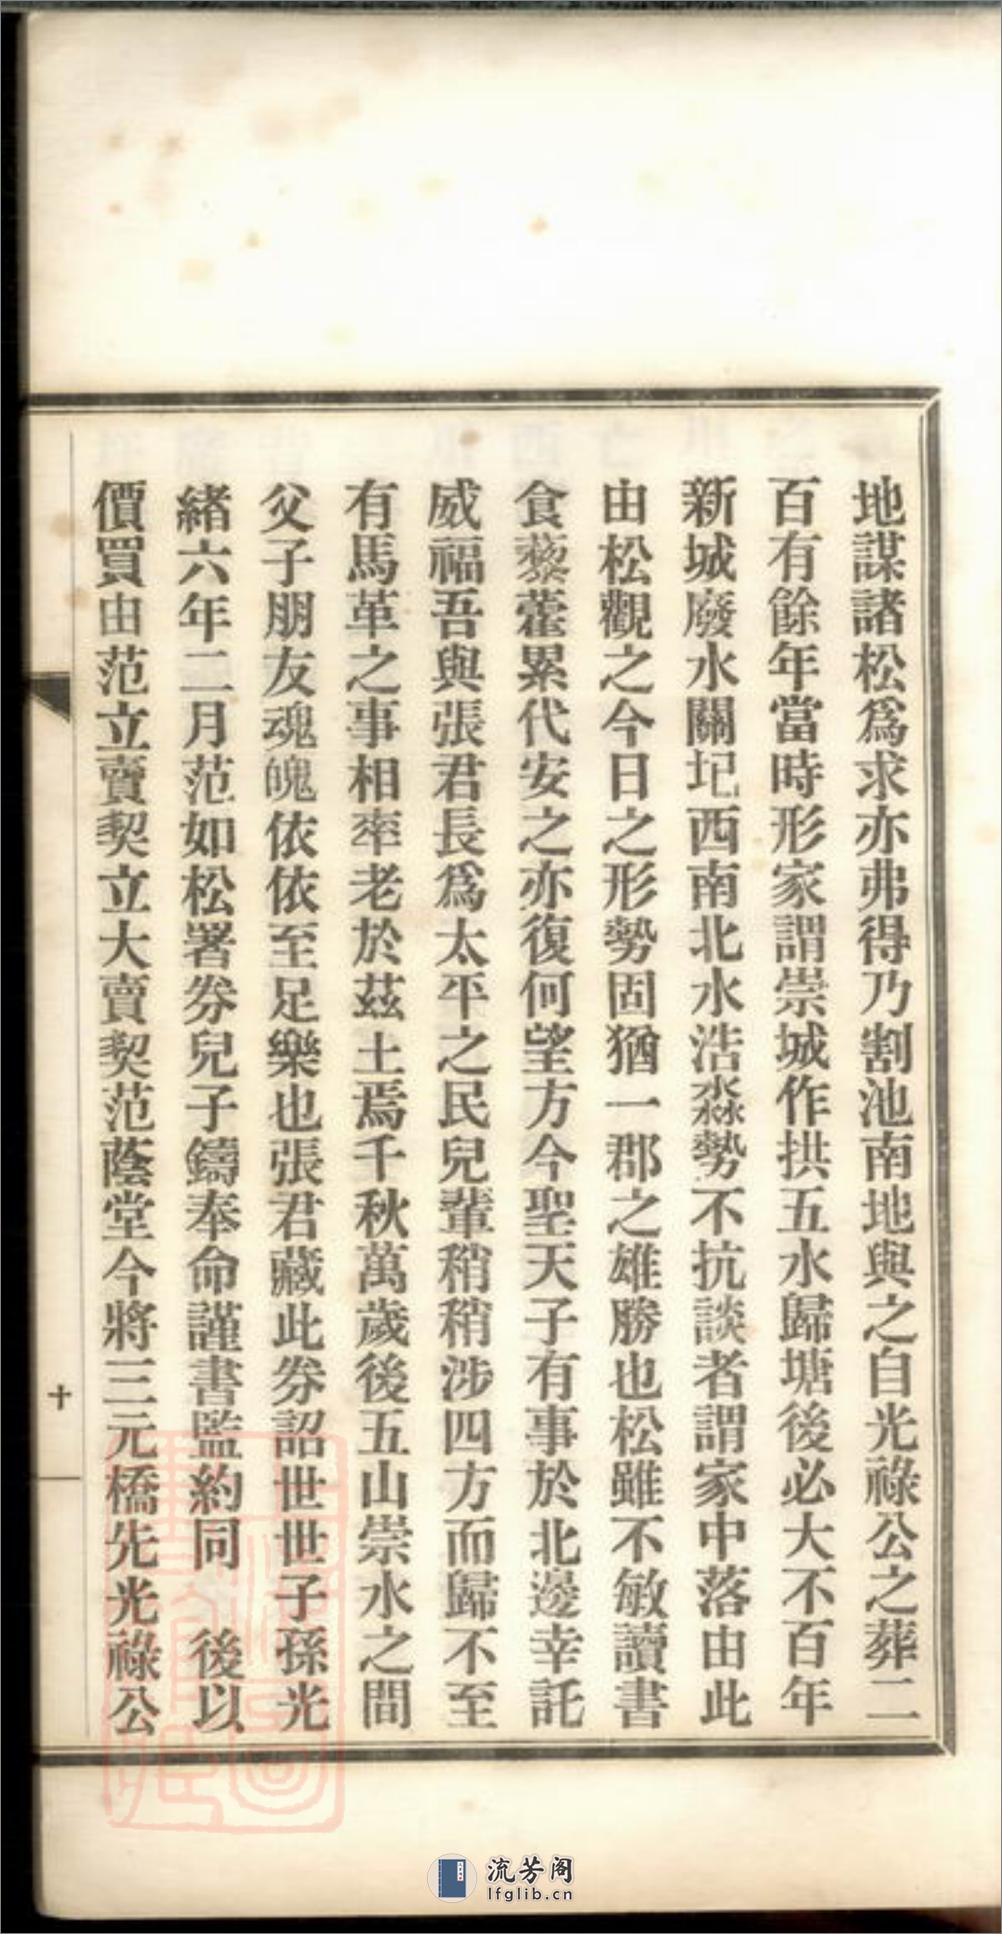 地謀諸松爲求亦弗得乃割池南地與之自光祿公之葬二
百有餘年當時形家謂崇城作拱五水歸塘後必大不百年
新城廢水關圮西南北水浩淼勢不抗談者謂家中落由此
由松觀之今日之形勢固猶一郡之雄勝也松雖不敏讀書
食藜藿累代安之亦復何望方今聖天子有事於北邊幸託
威福吾與張君長爲太平之民兒輩稍稍涉四方而歸不至
有馬革之事相率老於茲土焉千秋萬歲後五山崇水之間
父子朋友魂魄依依至足樂也張君藏此券詔世世子孫光
緒六年二月范如松署券兒子鑄奉命謹書監約同　後以
價買由范立賣契立大賣契范蔭堂今將三元橋先光祿公
十
流芳阁
lfglib.cn